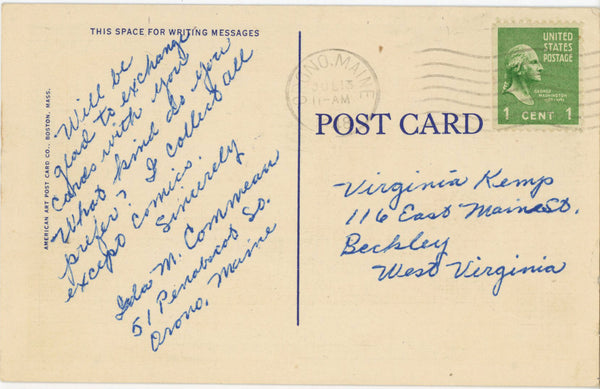 THIS SPACE FOR WRITING MESSAGES
Will be
glad to exchange
cards with you
What kind do you
prefer? I collect all
except comics.
Sincerely
Ida M. Commeau
51 Penobscot So.
Orono, Maine
AMERICAN ART POST CARD CO., BOSTON, MASS.
ORONO, MAINE
JUL 13
11-AM
UNITED
STATES
POSTAGE
GEORGE
WASHINGTON
1 CENT 1
POST CARD
Virginia Kemp
116 East Main St.
Beckley
West Virginia